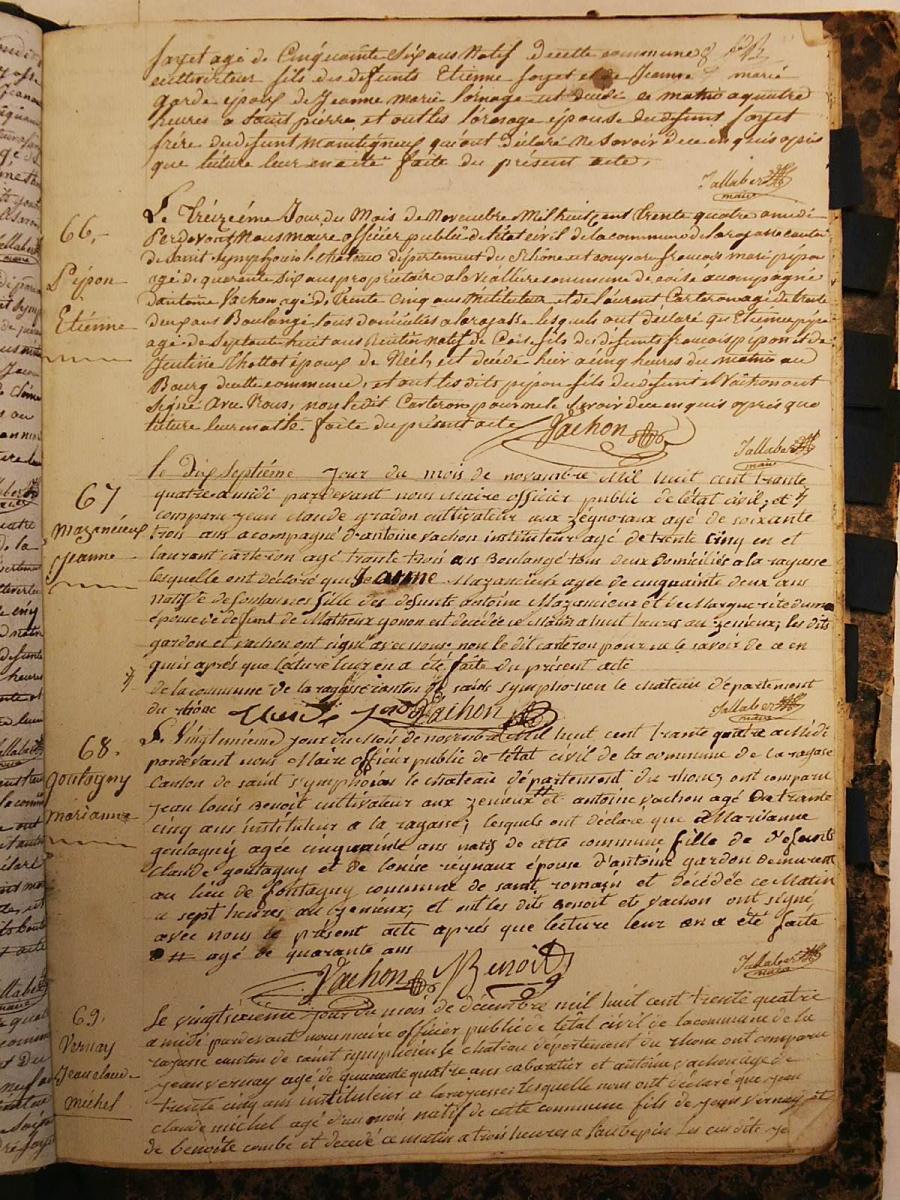 foryet agé de Cinquante Six ans Natif decette commune
cultivateur fils des defunts Etienne foryet et de Jeanne marié
garde époux de Jeanne Marie loinage est decedé ce matin a quatre
heures a Saint pierre, et ont les loinage épouse du defunt foryet
frère du defunt Manitigneux qui ont déclaré ne Savoir de ce enquis après
que lecture leur en a été faite du present acte.
Jallabert
maire
66,-
Pépon
Etienne
Le Treiziéme Jour du Mois de Novembre Mil huit cent trente quatre a midi
Perdevant Nous maire officier public de l'état civil de la commune de larajasse canton
de Saint Symphorien le chateau département du Rhone est comparu francois marie pépon
agé de quarante Six ans propriétaire a commune de coise accompagné
d'antoine Vachon agé de trente Cinq ans Instituteur et de laurent Carteron agé de trente
deux ans Boulangé tous domiciliés a larajasse lesquels ont déclaré que Etienne pépon
agé de Septante huit ans Natif de Coise fils des defunts francois pépon et de
Thollot époux de est decédé hier a cinq heures du matin au
Bourg decette commune, et ont les dits pépon fils du defunt et Vachon ont
Signé avec Nous, non le dit Carteron pour ne le Savoir de ce enquis après que
lecture leur en a été faite du present acte
Vachon
Jallabert
maire
67
Mazencieux
Jeanne
le Dix Septiéme Jour du mois de novembre Mil huit cent trente
quatre a midi pardevant nous Maire officier public de l'état civil, et
comparu jean claude gardon cultivateur aux zégnoraux agé de soixante
trois ans acompagné d'antoine vachon instituteur agé de trente cinq en et
laurant carterion agé trante trois ans Boulangé tous deux Domiciliés a la rajasse
lesquelle ont déclaré que Jeanne Mazancieux agée de cinquainte deux ans
natif de foulannes fille des defunts antoine Mazancieux et de Marguerite
épouse de defunt de Matheux gonon est decédée ce Matin a huit heures au zenieux; les dits
gardon et vachon ont signé avec nous non le dit carteron pour ne le savoir de ce en
quis aprés que lecture leur en a été faite du présent acte
de la commune de la rajasse canton de saint symphorien le chateau département
du rhône
Vachon
Jallabert
maire
68.
goutagny
Marianne
Le Vingtunieme jour du Mois de novembre Mil huit cent trante quatre a Midi
pardevant nous Maire officier public de l'état civil de la commune de la rajasse
canton de saint symphorien le chateau département du rhone, ont comparu
jean louis Benoit cultivateur aux zenieux # et antoine vachon agé De trante
cinq ans instituteur a la rajasse; lesquels ont déclaré que Marianne
goutagny agée cinquainte ans natif de cette commune fille de defunt
claude goutagny et de louise reynaux épouse d'antoine gardon demeurant
au lieu de Fontagny commune de saint romain et décédée ce Matin
a sept heures au zenieux; et ont les dits Benoit et vachon ont signé
avec nous le présent acte aprés que lecture leur en a été faite
# agé de quarante ans
Vachon Benoit
Jallabert
maire
69.
Vernay
Jean claude
michel
Le vingtsixième jour du mois de décembre mil huit cent trente quatre
a midi pardevant nous maire officier public de l'état civil de la commune de la
rajasse canton de saint symphorien le chateau département du rhone ont comparu
jean vernay agé de quarente quatre ans cabaretier et antoine vachon agé de
trente cinq ans instituteur a la rajasse; lesquelle nous ont déclaré que jean
claude michel agé d'un mois natif de cette commune fils de jean vernay et
de benoite combe et decedé ce matin a trois heures a l'aubepin les susdits